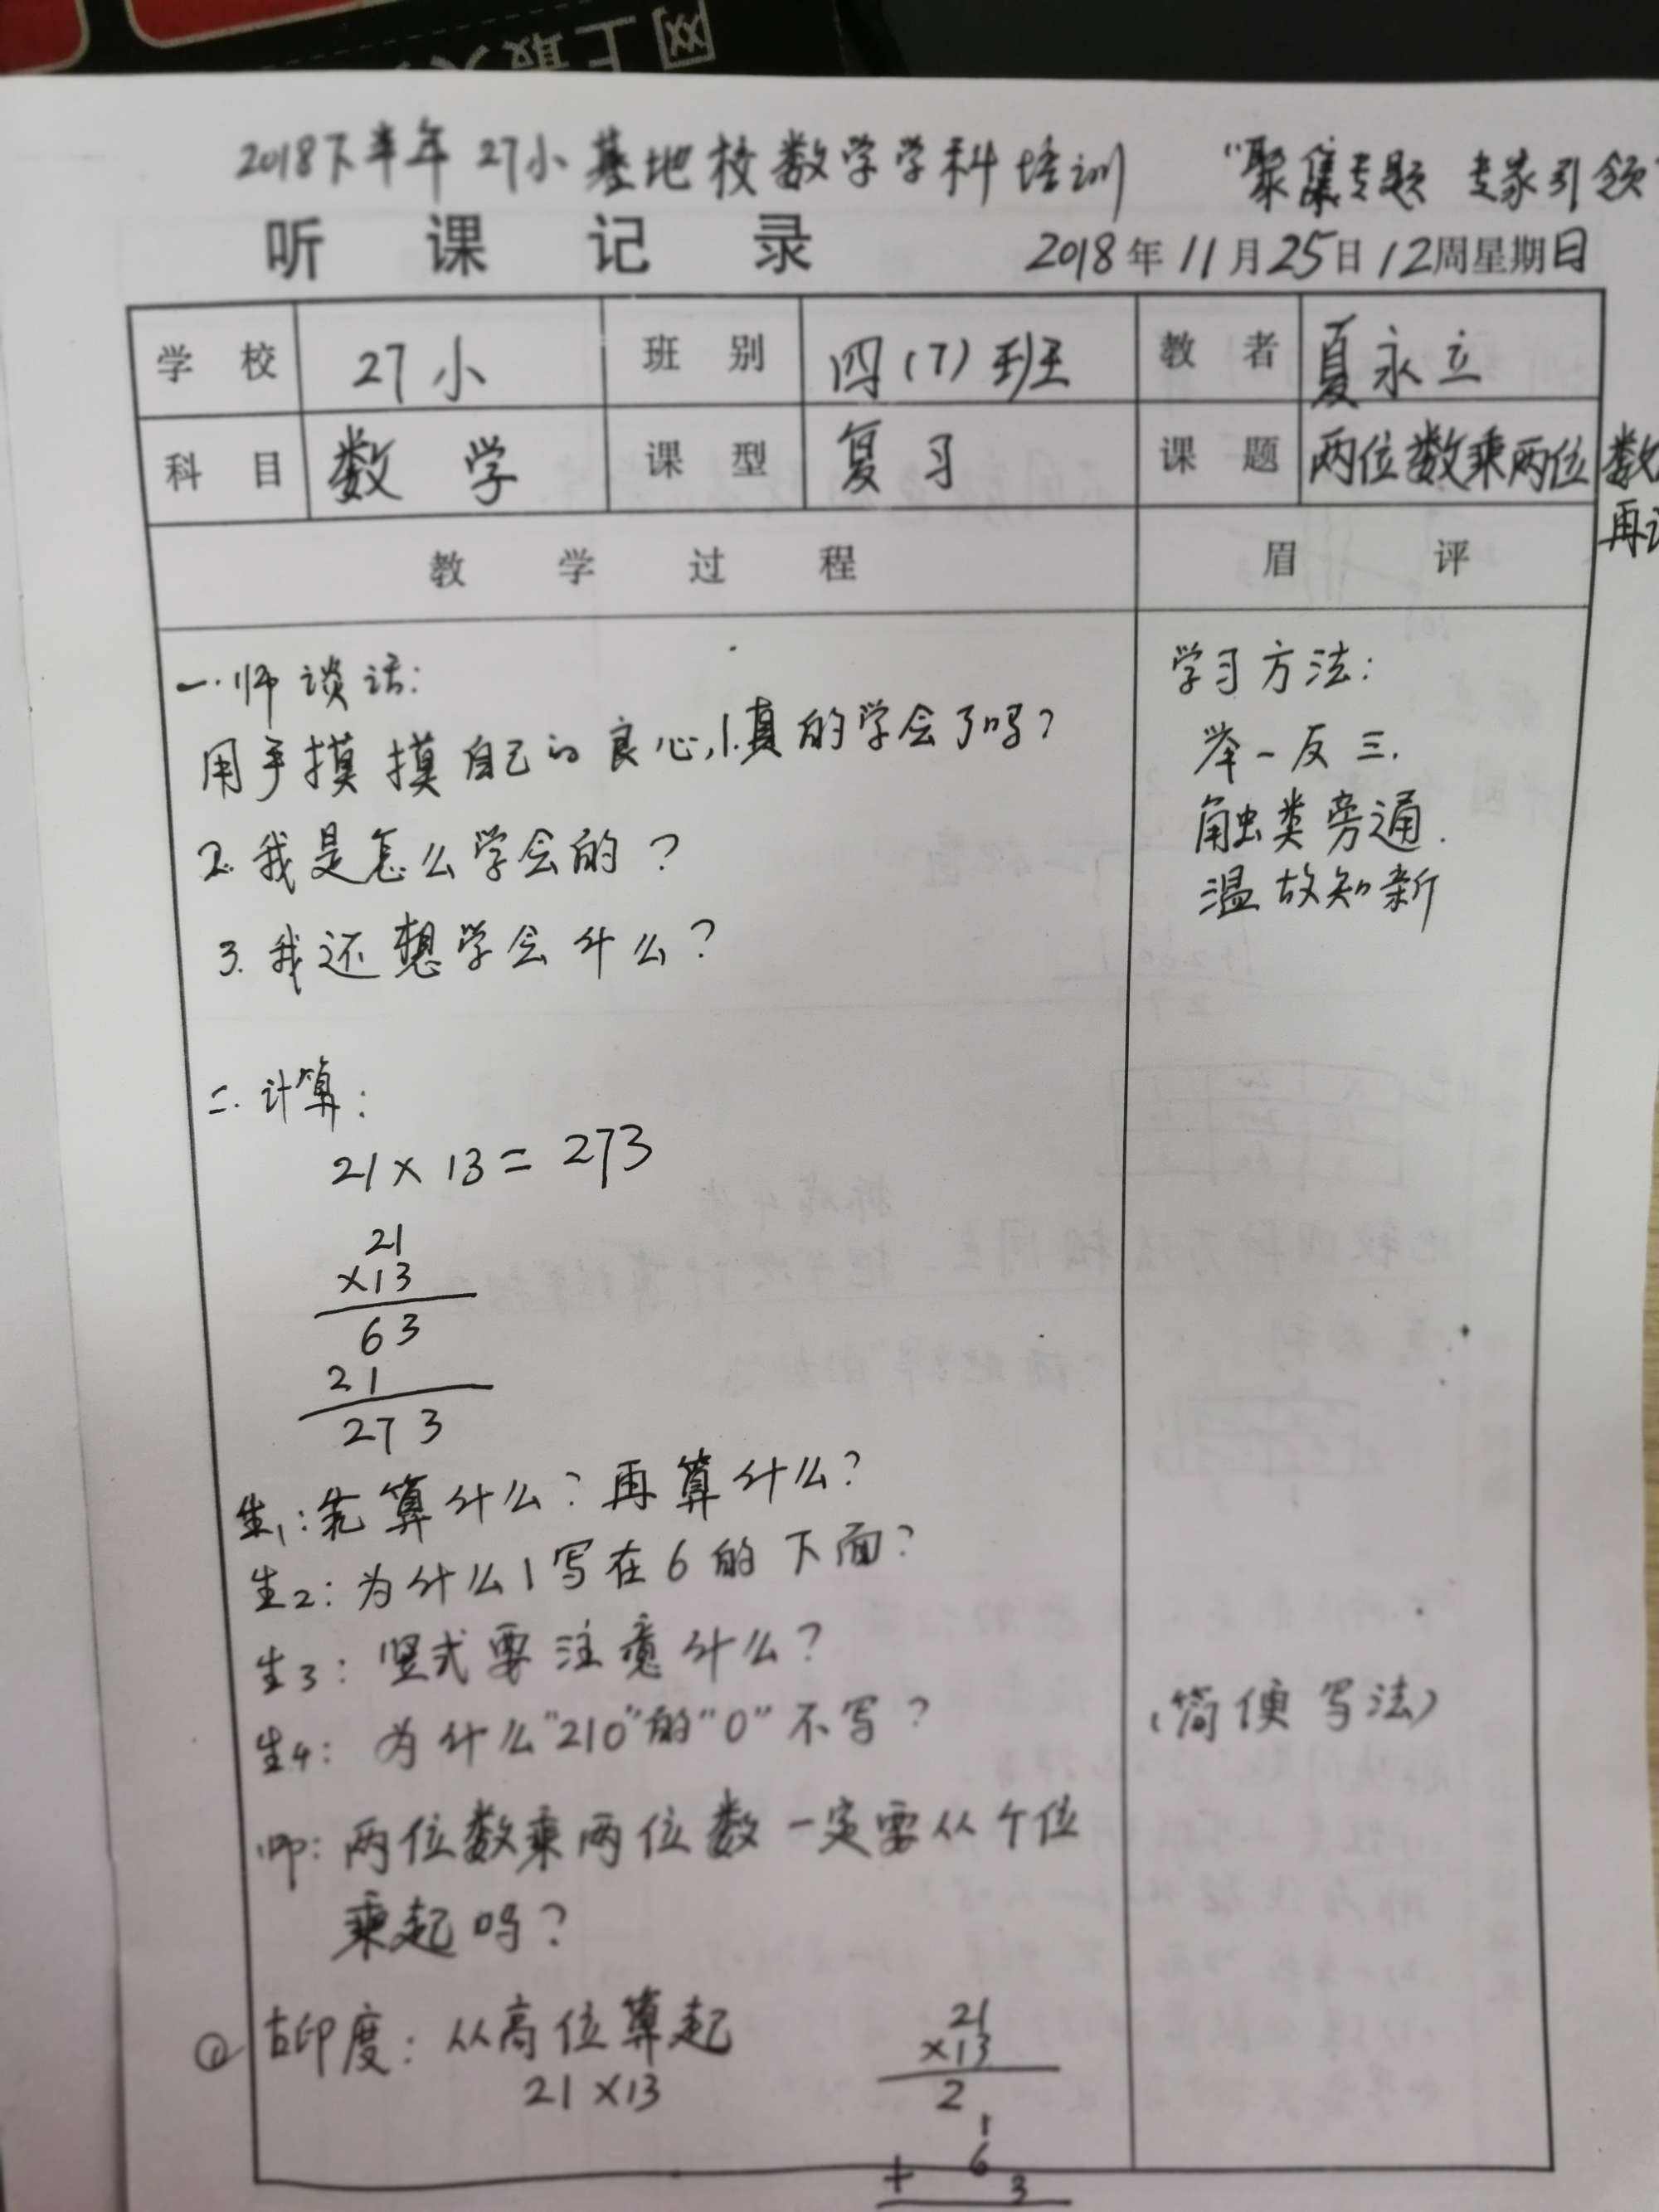 网上最
2018下半年 27小基地校数学学科培训 “聚集专题 专家引领”
听课记录 2018年11月25日12周星期日
学校 27小 班别 四(7)班 教者 夏永立
科目 数学 课型 复习 课题 两位数乘两位数
再
教学过程 眉评
一.师谈话: 学习方法:
用手摸摸自己的良心,1.真的学会了吗? 举一反三.
2.我是怎么学会的? 触类旁通.
3.我还想学会什么? 温故知新
二.计算:
21×13=273
21
×13
63
21
273
生1:先算什么?再算什么?
生2:为什么1写在6的下面?
生3:竖式要注意什么?
生4:为什么“210”的“0”不写? (简便写法)
师:两位数乘两位数一定要从个位
乘起吗?
①古印度:从高位算起
21×13
21
×13
2
1
6
+ 3